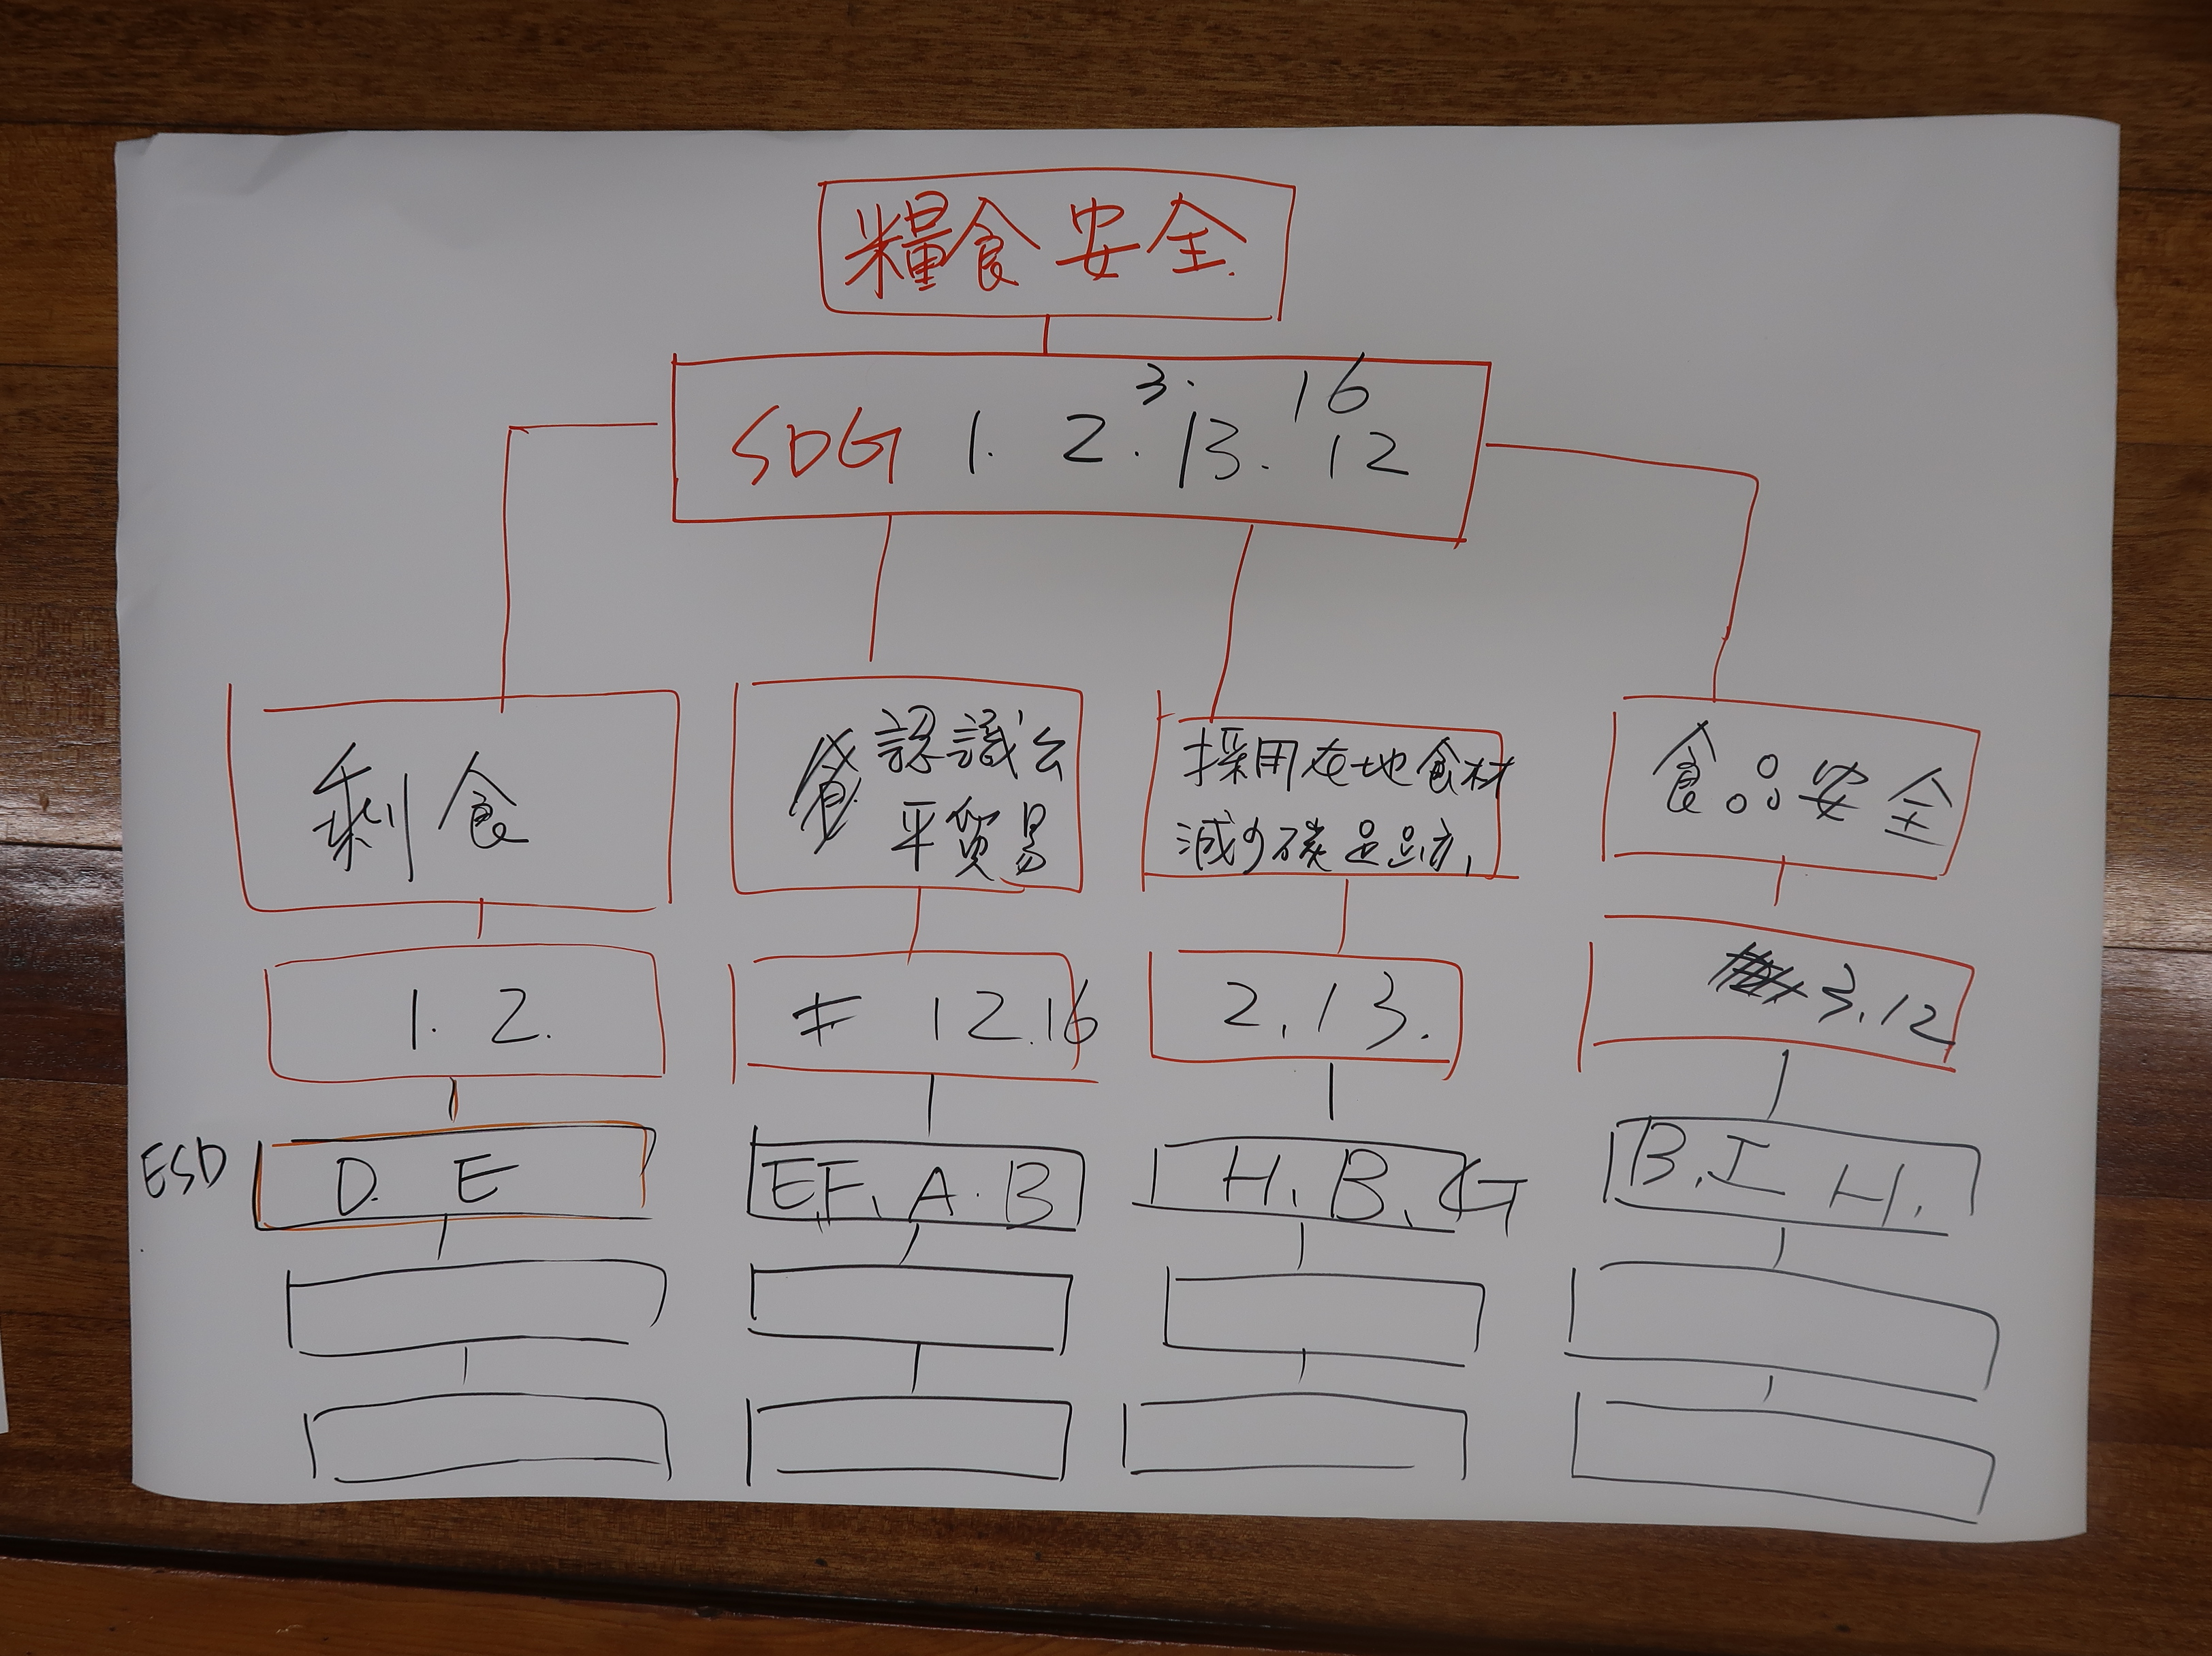 糧食安全
3. 16
SDG 1. 2. 13. 12
剩食
認識公
平貿易
採用在地食材
減少碳足跡
食品安全
1. 2.
12.16
2.13.
3.12
ESD
D. E
E,F, A. B
H. B. G
B. I H.